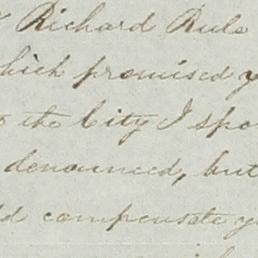 Richard Rule
which promised y
the City I spo
denounced, but
ld compensate y